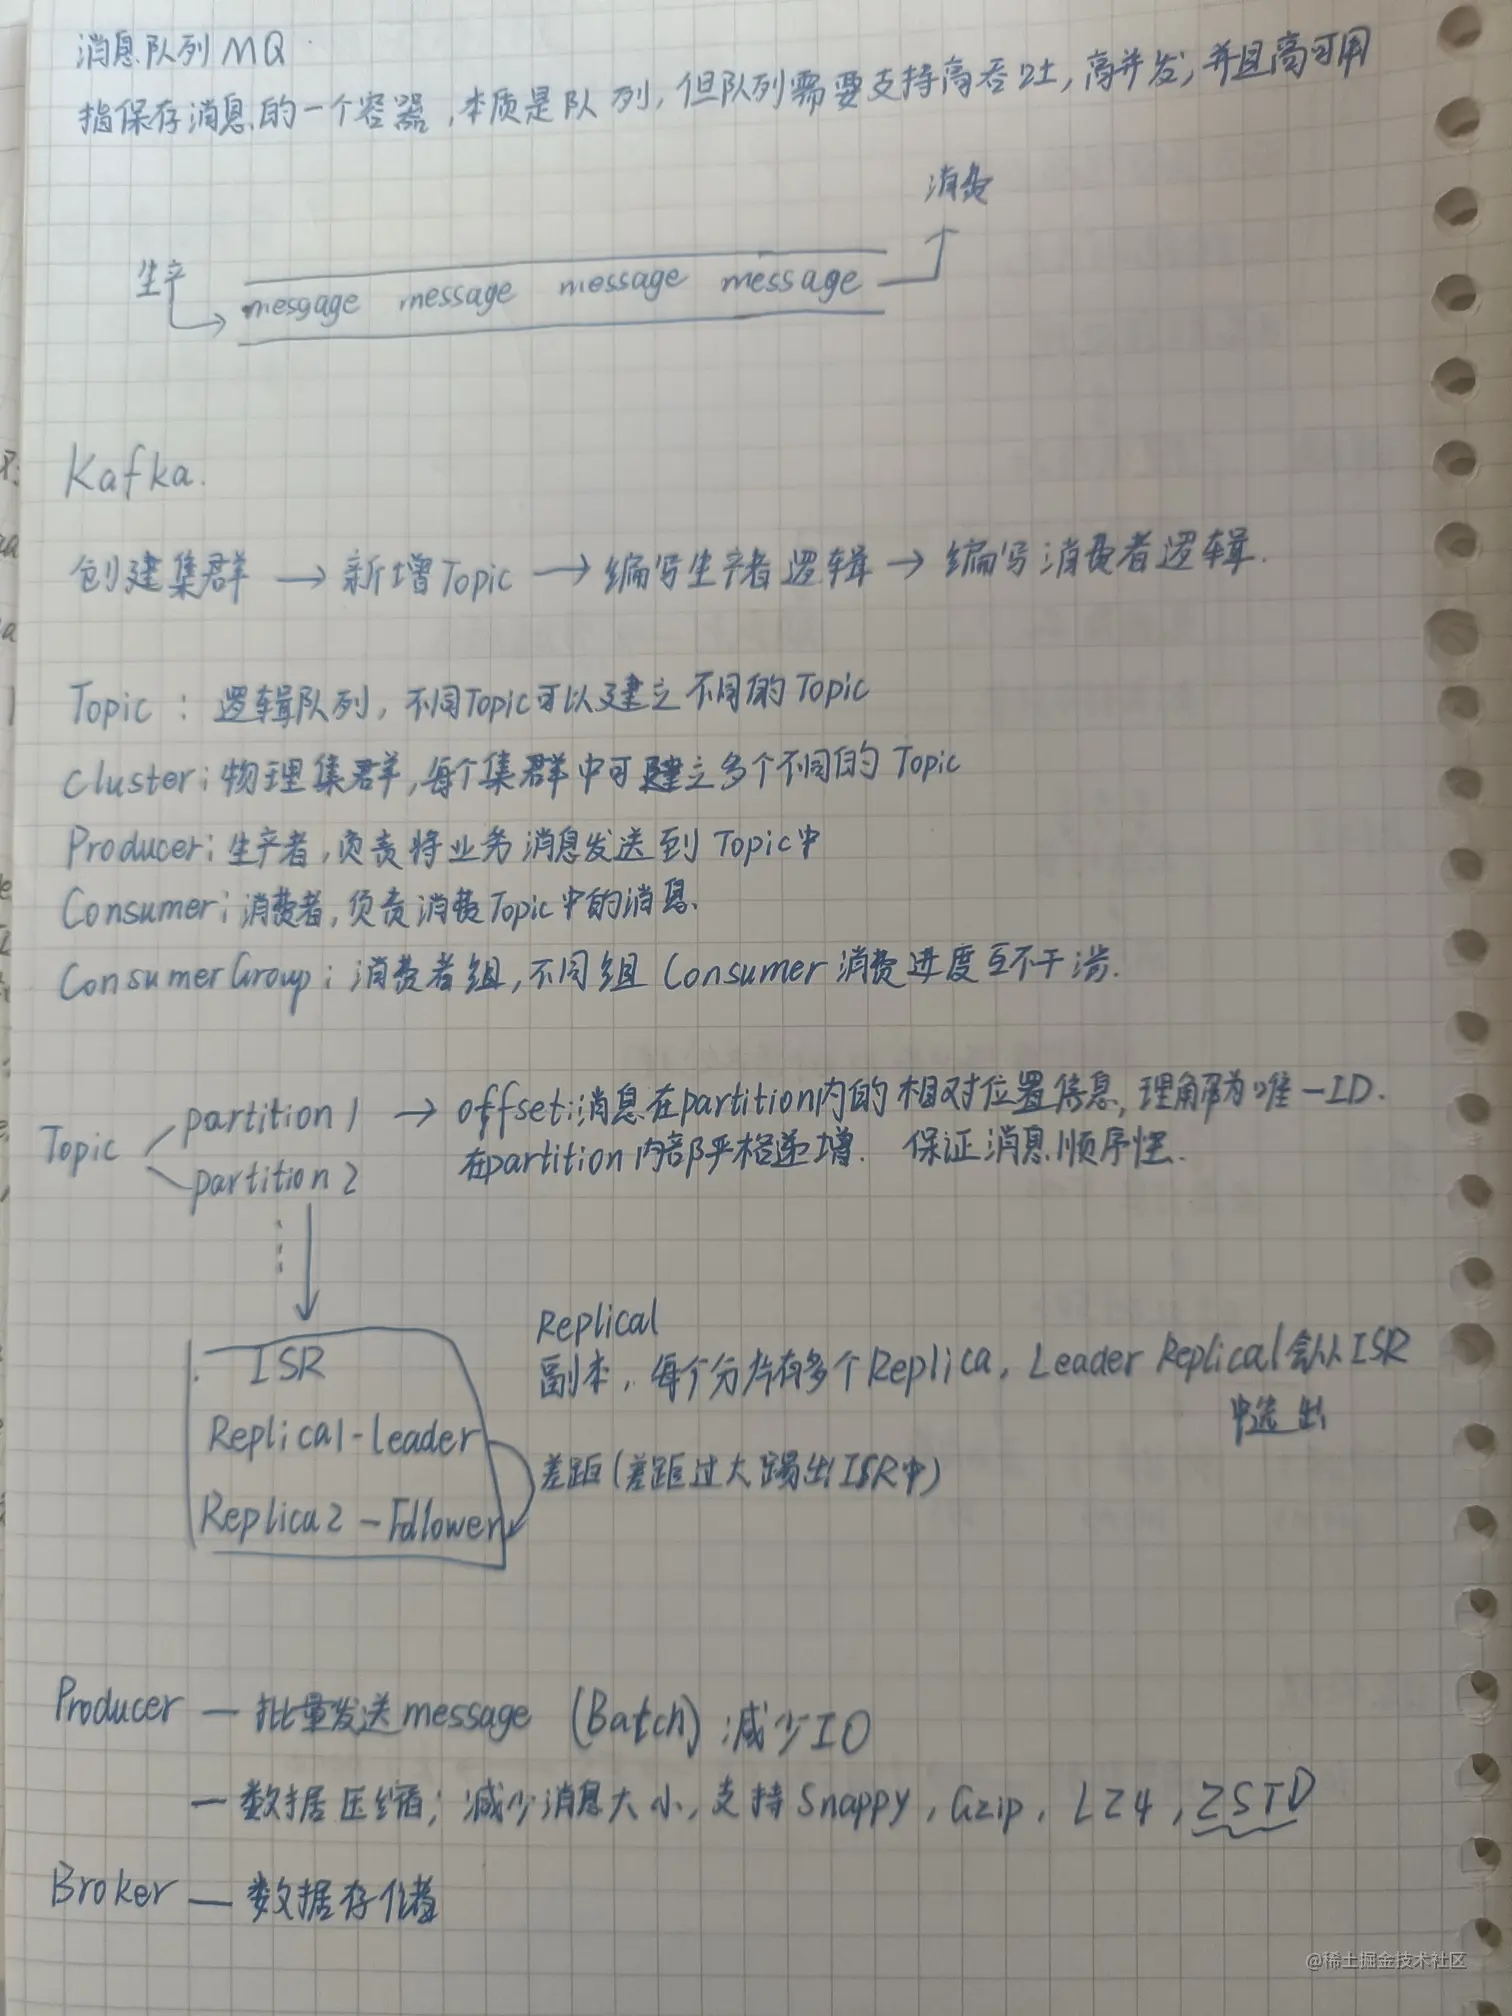 消息队列MQ
指保存消息的一个容器,本质是队列,但队列需要支持高吞吐,高并发,并且高可用
消费
生产
message message message message
Kafka.
创建集群 → 新增Topic → 编写生产者逻辑 → 编写消费者逻辑.
Topic : 逻辑队列, 不同Topic可以建立不同的Topic
Cluster: 物理集群,每个集群中可建立多个不同的Topic
Producer: 生产者,负责将业务消息发送到Topic中
Consumer: 消费者,负责消费Topic中的消息.
ConsumerGroup: 消费者组,不同组Consumer消费进度互不干涉.
Topic
partition1 → offset:消息在partition内的相对位置信息,理解为唯一ID.
在partition内部严格递增. 保证消息顺序性.
partition2
Replical
ISR
副本, 每个分片有多个Replica, Leader Replical会从ISR
中选出
Replica1-leader
差距(差距过大踢出ISR中)
Replica2-Follower
Producer — 批量发送message (Batch) 减少IO
— 数据压缩; 减少消息大小,支持Snappy, Gzip, LZ4, ZSTD
Broker — 数据存储
@稀土掘金技术社区